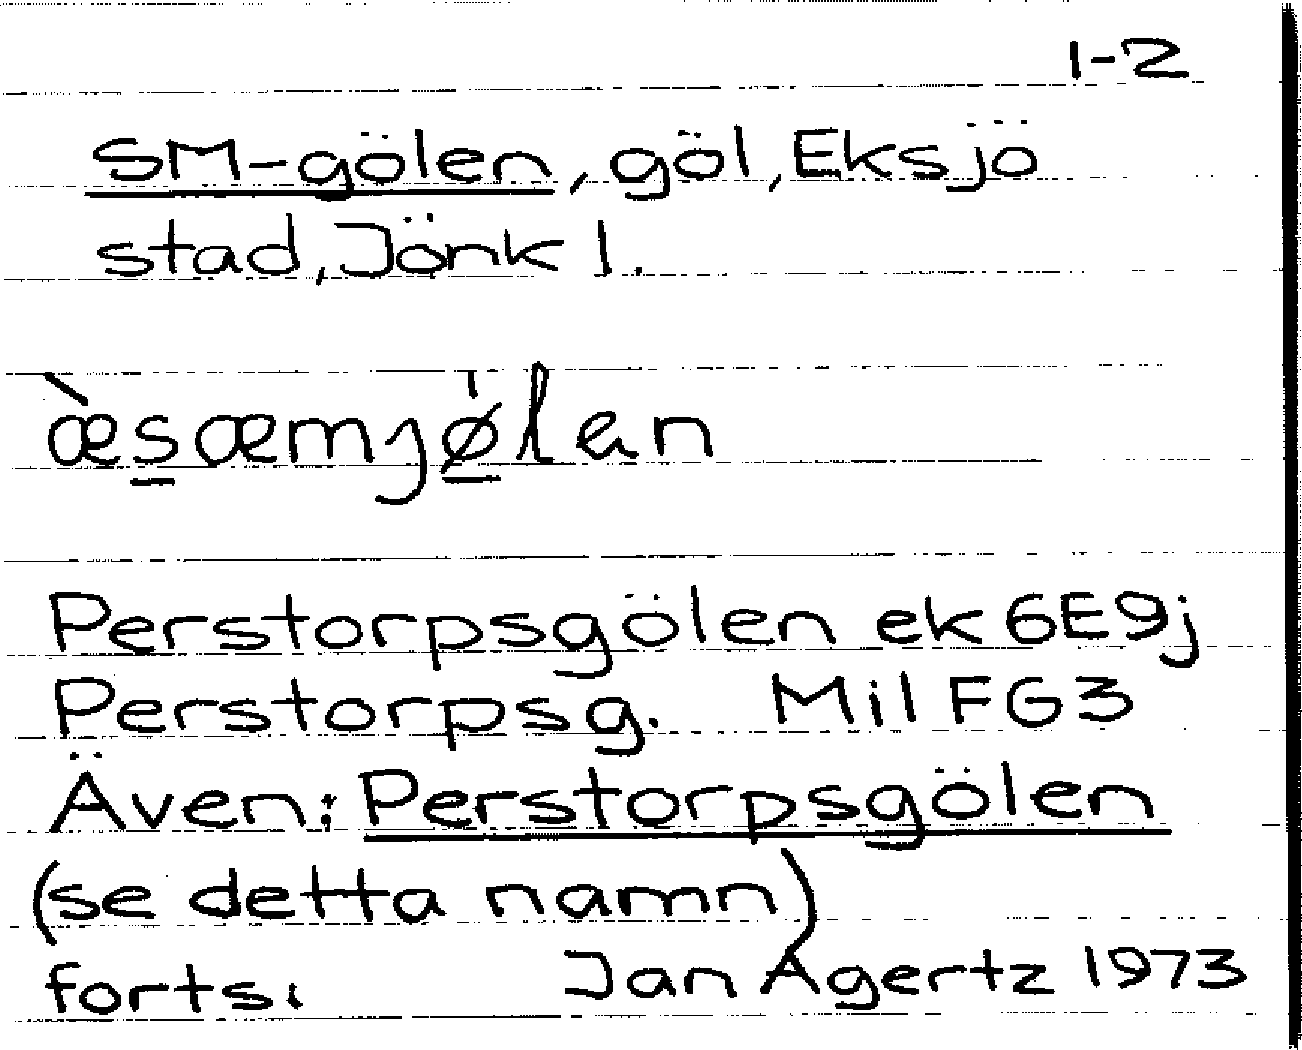 1-2
SM-gölen, göl, Eksjö
stad, Jönk l.
æ̀s̲æmjø̲̍len
Perstorpsgölen ek 6E9j
Perstorpsg. Mil FG3
Även: Perstorpsgölen
(se detta namn)
forts. Jan Agertz 1973